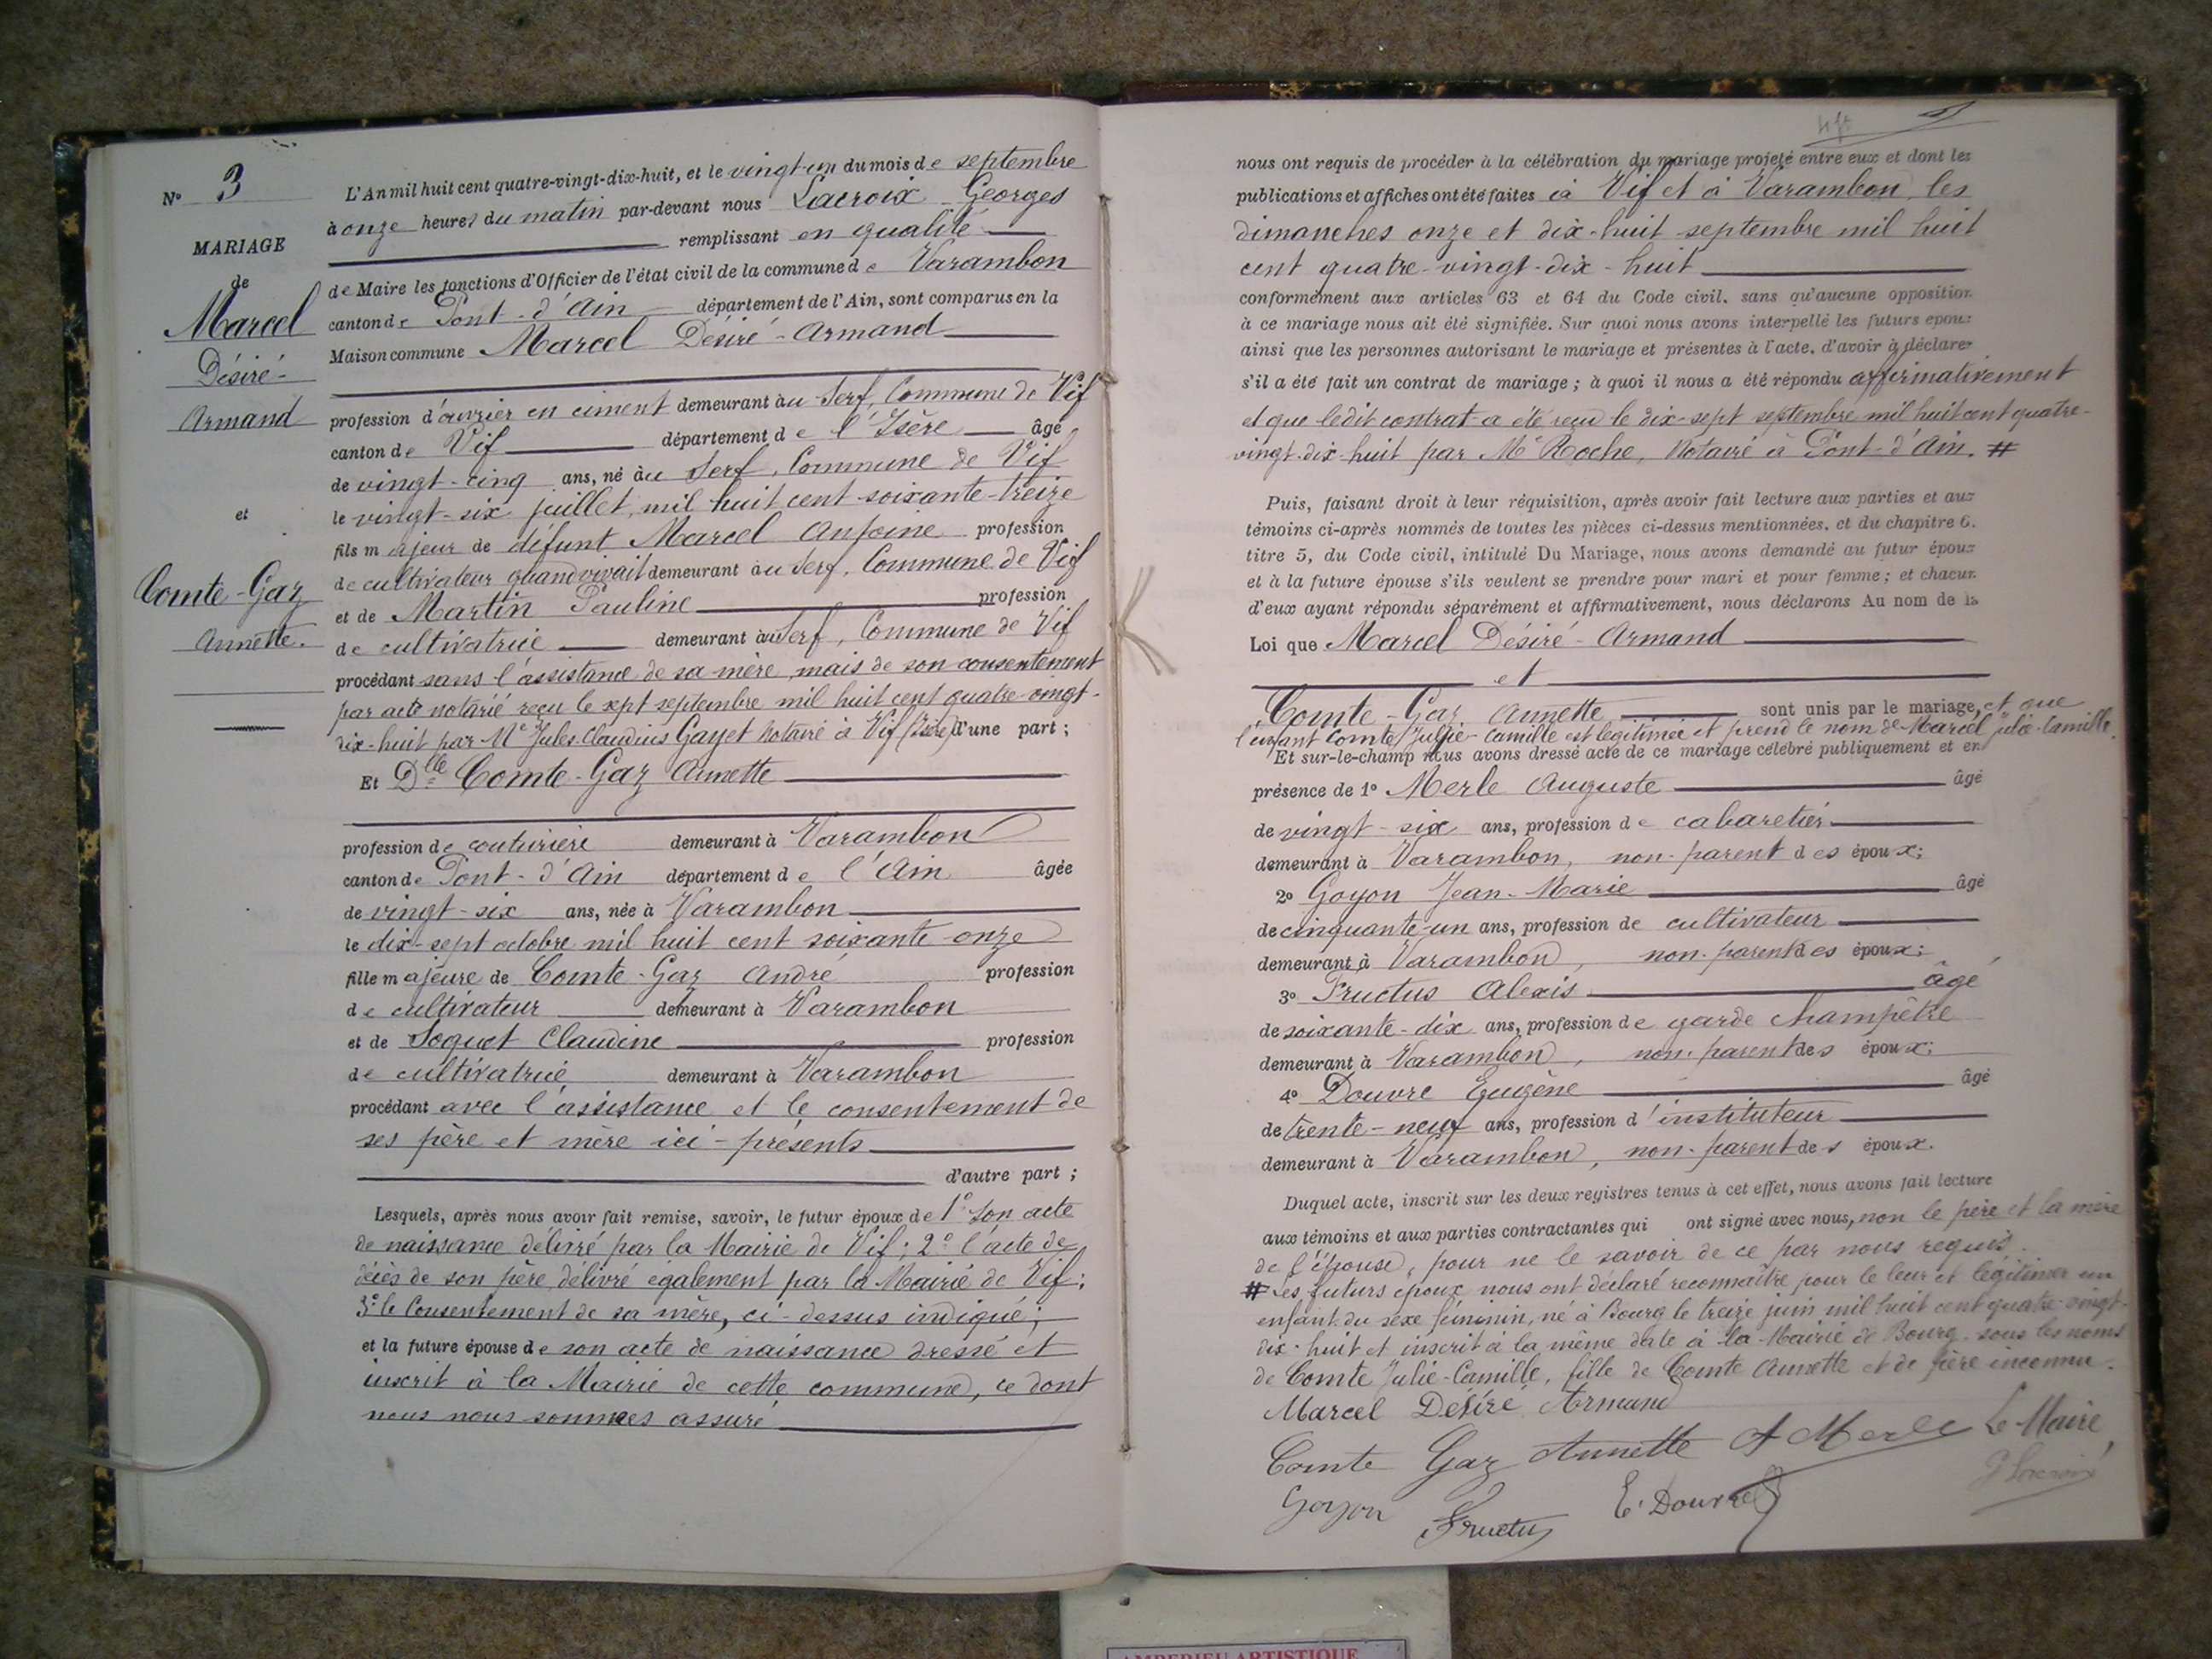 N° 3
MARIAGE
de
Marcel
Désiré-
Armand
et
Comte-Gaz
Annette.
L'An mil huit cent quatre-vingt-dix-huit, et le vingt-un du mois de septembre
à onze heures du matin par-devant nous Lacroix Georges
remplissant en qualité
de Maire les fonctions d'Officier de l'état civil de la commune de Varambon
canton de Pont-d'Ain département de l'Ain, sont comparus en la
Maison commune Marcel Désiré-Armand
profession d'ouvrier en ciment demeurant au Serf, Commune de Vif
canton de Vif département de l'Isère âgé
de vingt-cinq ans, né au Serf, Commune de Vif
le vingt-six juillet, mil huit cent soixante-treize
fils majeur de défunt Marcel Antoine profession
de cultivateur quand vivait demeurant au Serf, Commune de Vif
et de Martin Pauline profession
de cultivatrice demeurant au Serf, Commune de Vif
procédant sans l'assistance de sa mère, mais de son consentement
par acte notarié reçu le sept septembre mil huit cent quatre-vingt-
dix-huit par Me Jules Claudius Gayet Notaire à Vif (Isère) d'une part ;
Et Dlle Comte-Gaz Annette
profession de couturière demeurant à Varambon
canton de Pont-d'Ain département de l'Ain âgée
de vingt-six ans, née à Varambon
le dix-sept octobre mil huit cent soixante-onze
fille majeure de Comte-Gaz André profession
de cultivateur demeurant à Varambon
et de Soquet Claudine profession
de cultivatrice demeurant à Varambon
procédant avec l'assistance et le consentement de
ses père et mère ici-présents
d'autre part ;
Lesquels, après nous avoir fait remise, savoir, le futur époux de 1° Son acte
de naissance délivré par la Mairie de Vif ; 2° l'acte de
décès de son père, délivré également par la Mairie de Vif ;
3° le Consentement de sa mère, ci-dessus indiqué ;
et la future épouse de son acte de naissance dressé et
inscrit à la Mairie de cette commune, ce dont
nous nous sommes assuré
nous ont requis de procéder à la célébration du mariage projeté entre eux et dont les
publications et affiches ont été faites à Vif et à Varambon, les
dimanches onze et dix-huit septembre mil huit
cent quatre-vingt-dix-huit
conformément aux articles 63 et 64 du Code civil, sans qu'aucune opposition
à ce mariage nous ait été signifiée. Sur quoi nous avons interpellé les futurs époux
ainsi que les personnes autorisant le mariage et présentes à l'acte, d'avoir à déclarer
s'il a été fait un contrat de mariage ; à quoi il nous a été répondu affirmativement
et que ledit contrat a été reçu le dix-sept septembre mil huit cent quatre-
vingt-dix-huit par Me Roche, Notaire à Pont-d'Ain. #
Puis, faisant droit à leur réquisition, après avoir fait lecture aux parties et aux
témoins ci-après nommés de toutes les pièces ci-dessus mentionnées, et du chapitre 6,
titre 5, du Code civil, intitulé Du Mariage, nous avons demandé au futur époux
et à la future épouse s'ils veulent se prendre pour mari et pour femme ; et chacun
d'eux ayant répondu séparément et affirmativement, nous déclarons Au nom de la
Loi que Marcel Désiré-Armand
et
Comte-Gaz Annette sont unis par le mariage, et que
l'enfant Comte Julie-Camille est légitimée et prend le nom de Marcel Julie-Camille.
Et sur-le-champ nous avons dressé acte de ce mariage célébré publiquement et en
présence de 1° Merle Auguste âgé
de vingt-six ans, profession de cabaretier
demeurant à Varambon, non-parent des époux ;
2° Goyon Jean-Marie âgé
de cinquante-un ans, profession de cultivateur
demeurant à Varambon, non-parent des époux ;
3° Fructus Alexis âgé
de soixante-dix ans, profession de garde champêtre
demeurant à Varambon, non-parent des époux ;
4° Douvre Eugène âgé
de trente-neuf ans, profession d'instituteur
demeurant à Varambon, non-parent des époux.
Duquel acte, inscrit sur les deux registres tenus à cet effet, nous avons fait lecture
aux témoins et aux parties contractantes qui ont signé avec nous, non le père et la mère
de l'épouse, pour ne le savoir de ce par nous requis.
# Les futurs époux nous ont déclaré reconnaître pour le leur et légitimer un
enfant du sexe féminin, né à Bourg le treize juin mil huit cent quatre-vingt-
dix-huit et inscrit à la même date à la Mairie de Bourg sous les noms
de Comte Julie-Camille, fille de Comte Annette et de père inconnu.
Marcel Désiré Armand
Comte Gaz Annette A Merle Le Maire,
G Lacroix
Goyon Fructus E. Douvre
AMBERIEU ARTISTIQUE